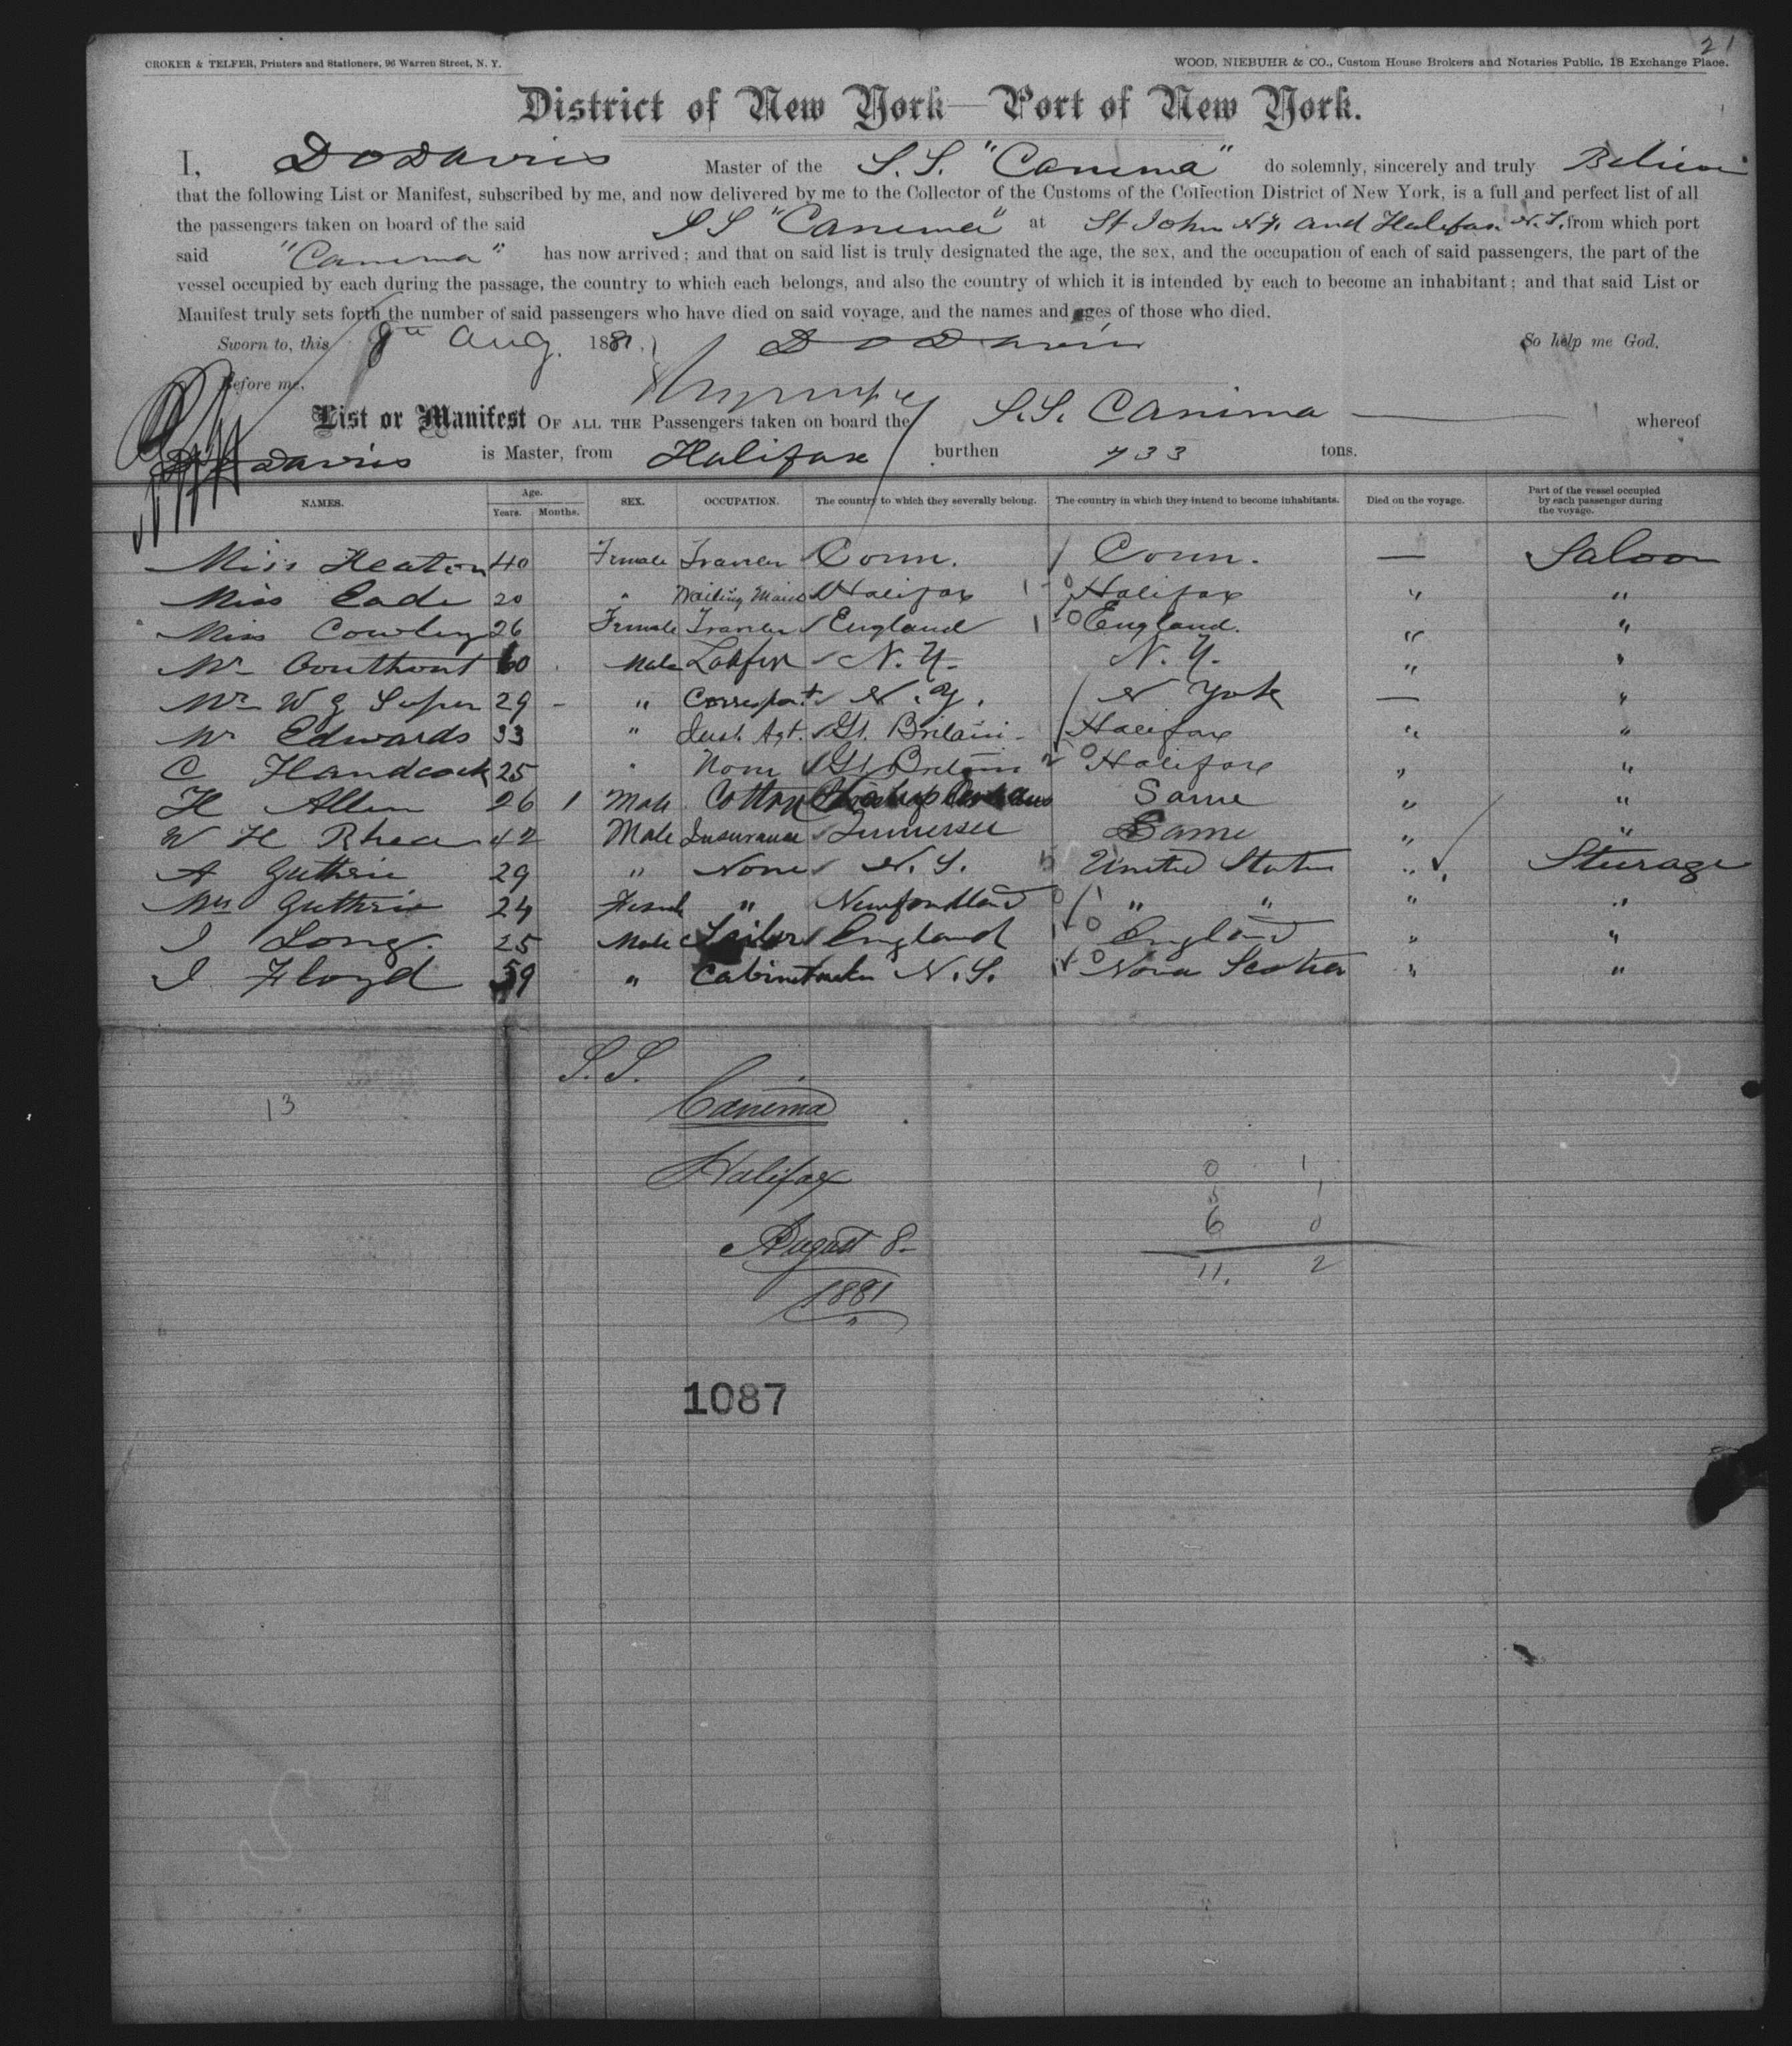 21
CROKER & TELFER, Printers and Stationers, 96 Warren Street, N. Y.
WOOD, NIEBUHR & CO., Custom House Brokers and Notaries Public, 18 Exchange Place.
District of New York—Port of New York.
I, D O Davis Master of the S. S. "Canima" do solemnly, sincerely and truly
that the following List or Manifest, subscribed by me, and now delivered by me to the Collector of the Customs of the Collection District of New York, is a full and perfect list of all
the passengers taken on board of the said S S "Canima" at St John N.F. and Halifax N. S. from which port
said "Canima" has now arrived; and that on said list is truly designated the age, the sex, and the occupation of each of said passengers, the part of the
vessel occupied by each during the passage, the country to which each belongs, and also the country of which it is intended by each to become an inhabitant; and that said List or
Manifest truly sets forth the number of said passengers who have died on said voyage, and the names and ages of those who died.
Sworn to, this Aug. 1881, D O Davis So help me God.
Before me,
List or Manifest OF ALL THE Passengers taken on board the S.S. Canima whereof
Davis is Master, from Halifax burthen 733 tons.
NAMES. Age. Years. Months. SEX. OCCUPATION. The country to which they severally belong. The country in which they intend to become inhabitants. Died on the voyage. Part of the vessel occupied by each passenger during the voyage.
Miss Heaton 40 Female Conn. Conn. — Saloon
Miss Eade 20 " Waiting Maid Halifax Halifax " "
Miss Cowley 26 Female England England. " "
Mr 60 Male N. Y. N. Y. " "
Mr W G 29 - " N. Y. N York — "
Mr Edwards 33 " Agt. Gt. Britain Halifax " "
C Handcock 25 " None Gt Britain Halifax " "
H Allen 26 1 Male Cotton Same " "
W H Rhea 42 Male Insurance Same " "
A Guthrie 29 " None N. S. United States " Sturage
Mrs Guthrie 24 Female " Newfoundland " " " "
J Long. 25 Male England England " "
J Floyd 59 " N. S. Nova Scotia " "
13
S. S.
Canima
Halifax
August 8-
1881
0 1
5 1
6 0
11. 2
1087